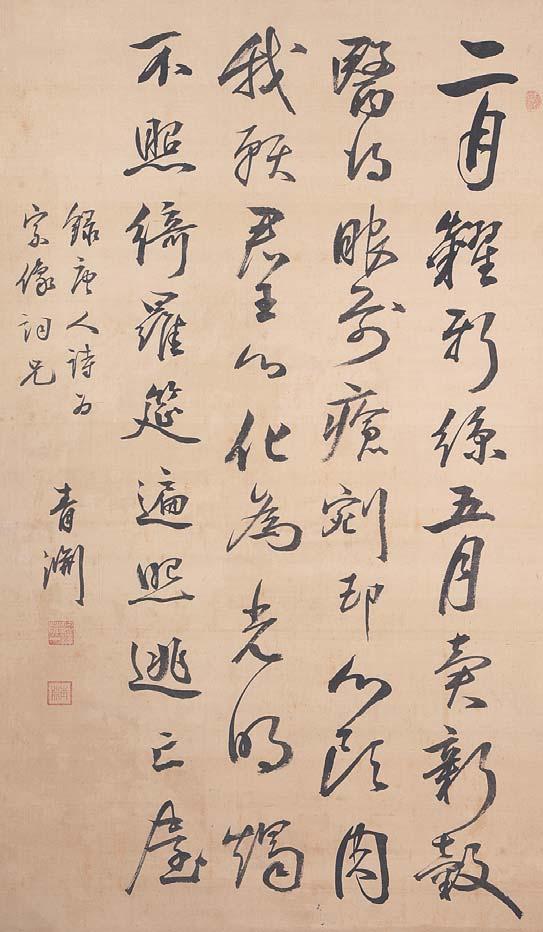 二月糶新絲五月賣新穀
醫得眼前瘡剜却心頭肉
我願君王心化為光明燭
不照綺羅筵遍照逃亡屋
錄唐人詩為
宗像詞兄
青淵